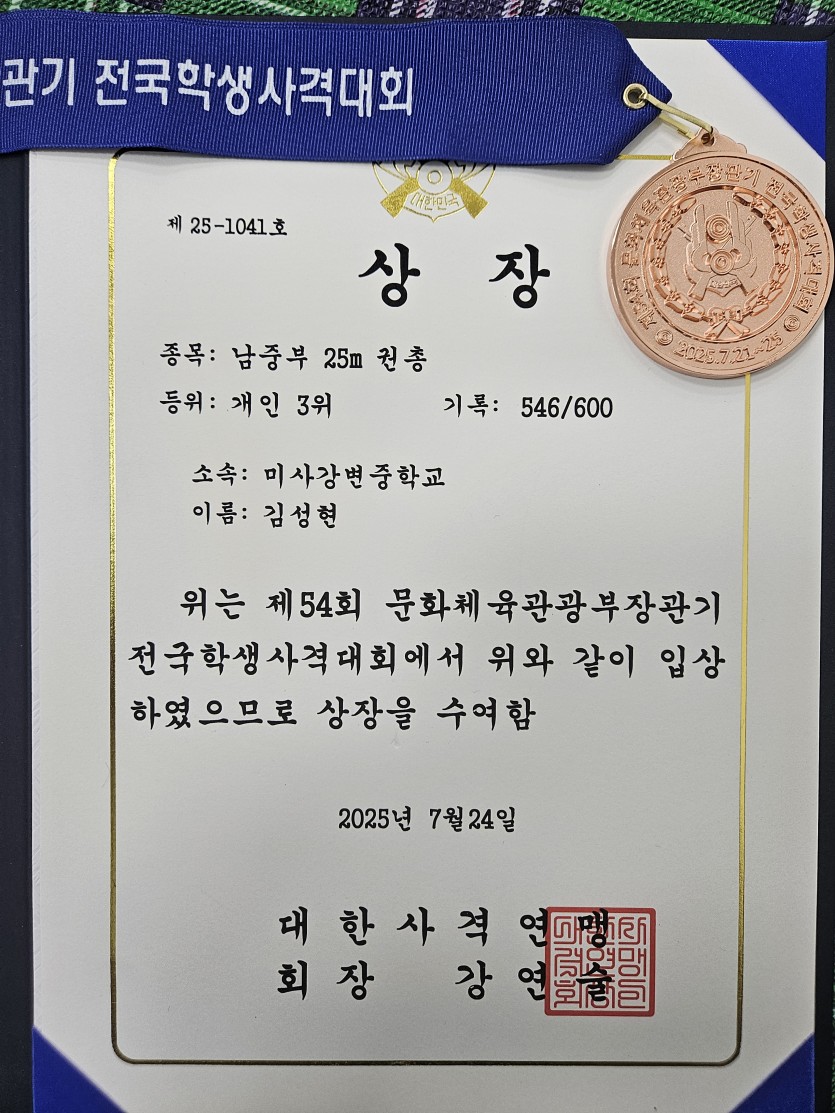 관기 전국학생사격대회
대한민국
제 25-1041호
상 장
제54회 문화체육관광부장관기 전국학생사격대회
2025.7.21~25
종목: 남중부 25m 권총
등위: 개인 3위 기록: 546/600
소속: 미사강변중학교
이름: 김성현
위는 제54회 문화체육관광부장관기
전국학생사격대회에서 위와 같이 입상
하였으므로 상장을 수여함
2025년 7월24일
대한사격연맹
회장 강연술